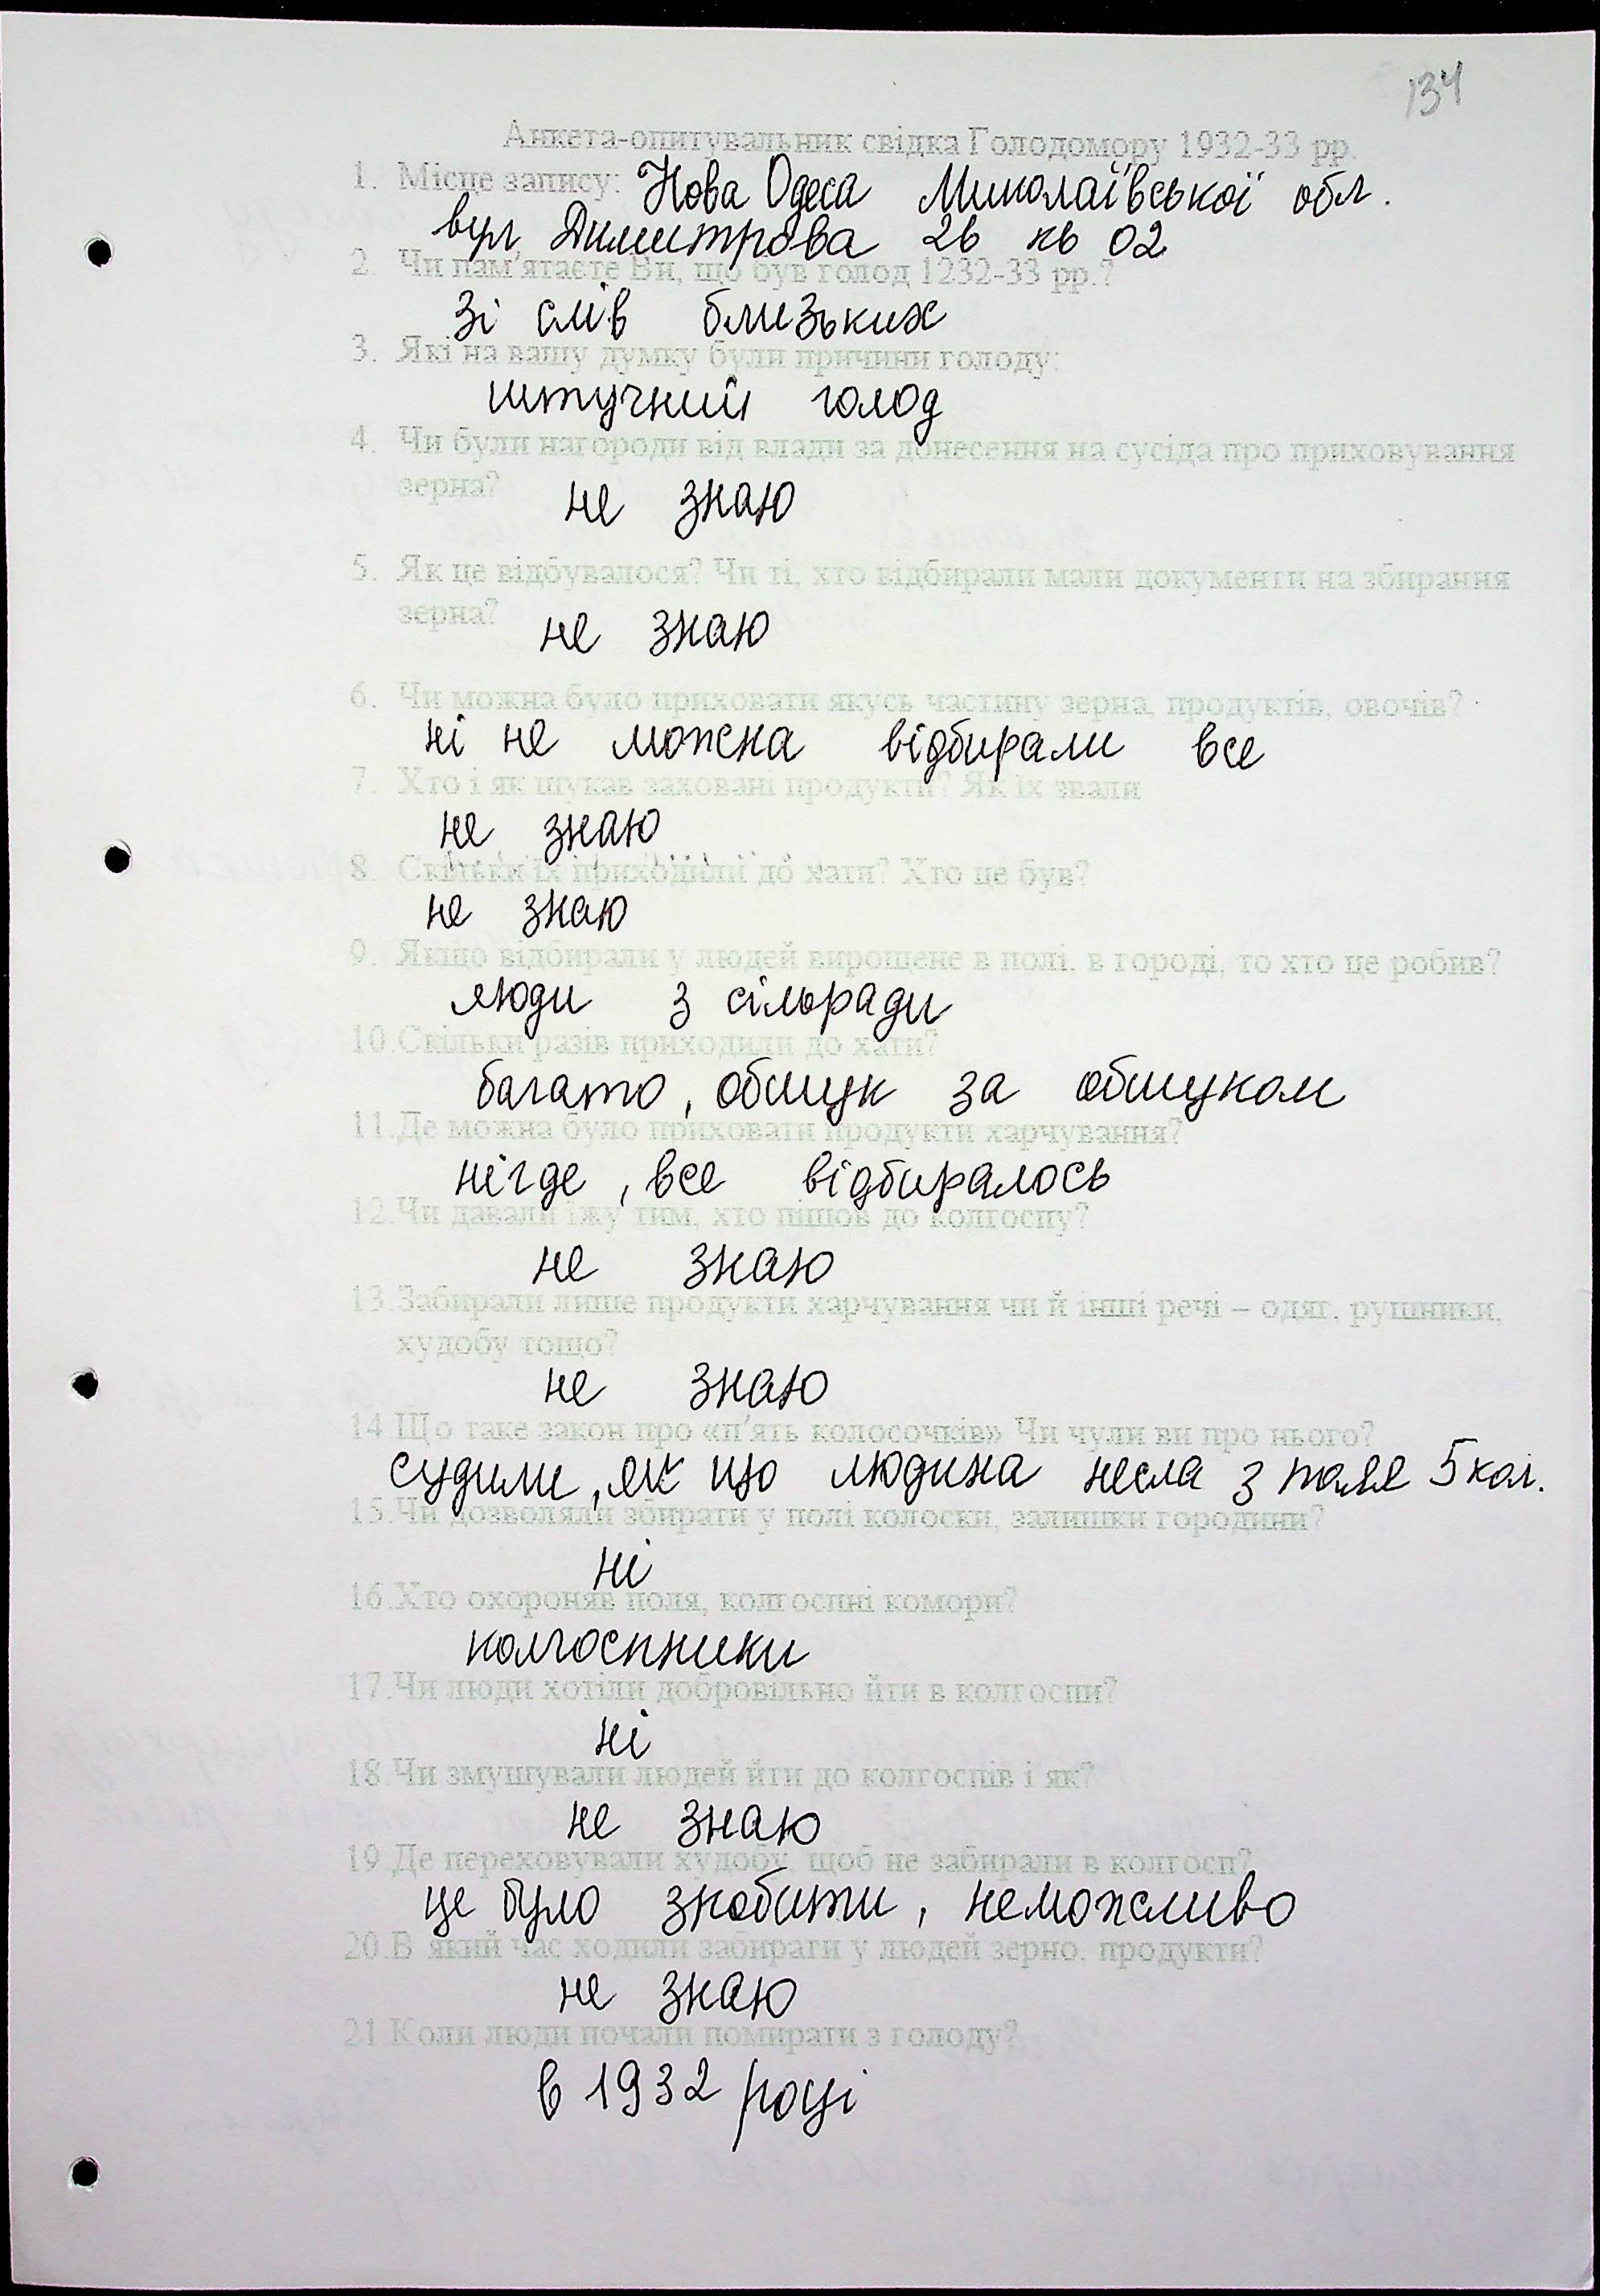 134
Анкета-опитувальник свідка Голодомору 1932-33 рр.
1. Місце запису: Нова Одеса Миколаївської обл.
вул Димитрова 26 кв 02
2. Чи пам'ятаєте Ви, що був голод 1232-33 рр.?
зі слів близьких
3. Які на вашу думку були причини голоду:
штучний голод
4. Чи були нагороди від влади за донесення на сусіда про приховування
зерна? не знаю
5. Як це відбувалося? Чи ті, хто відбирали мали документи на збирання
зерна? не знаю
6. Чи можна було приховати якусь частину зерна, продуктів, овочів?
ні не можна відбирали все
7. Хто і як шукав заховані продукти? Як їх звали
не знаю
8. Скільки їх приходили до хати? Хто це був?
не знаю
9. Якщо відбирали у людей вирощене в полі, в городі, то хто це робив?
люди з сільради
10.Скільки разів приходили до хати?
багато, обшук за обшуком
11.Де можна було приховати продукти харчування?
нігде, все відбиралось
12.Чи давали їжу тим, хто пішов до колгоспу?
не знаю
13.Забирали лише продукти харчування чи й інші речі – одяг, рушники,
худобу тощо?
не знаю
14 Що таке закон про «п'ять колосочків» Чи чули ви про нього?
судили, як що людина несла з поля 5 кол.
15.Чи дозволяли збирати у полі колоски, залишки городини?
ні
16.Хто охороняв поля, колгоспні комори?
колгоспники
17.Чи люди хотіли добровільно йти в колгоспи?
ні
18.Чи змушували людей йти до колгоспів і як?
не знаю
19.Де переховували худобу, щоб не забирали в колгосп?
це було зробити, неможливо
20.В який час ходили забирати у людей зерно, продукти?
не знаю
21.Коли люди почали помирати з голоду?
в 1932 році